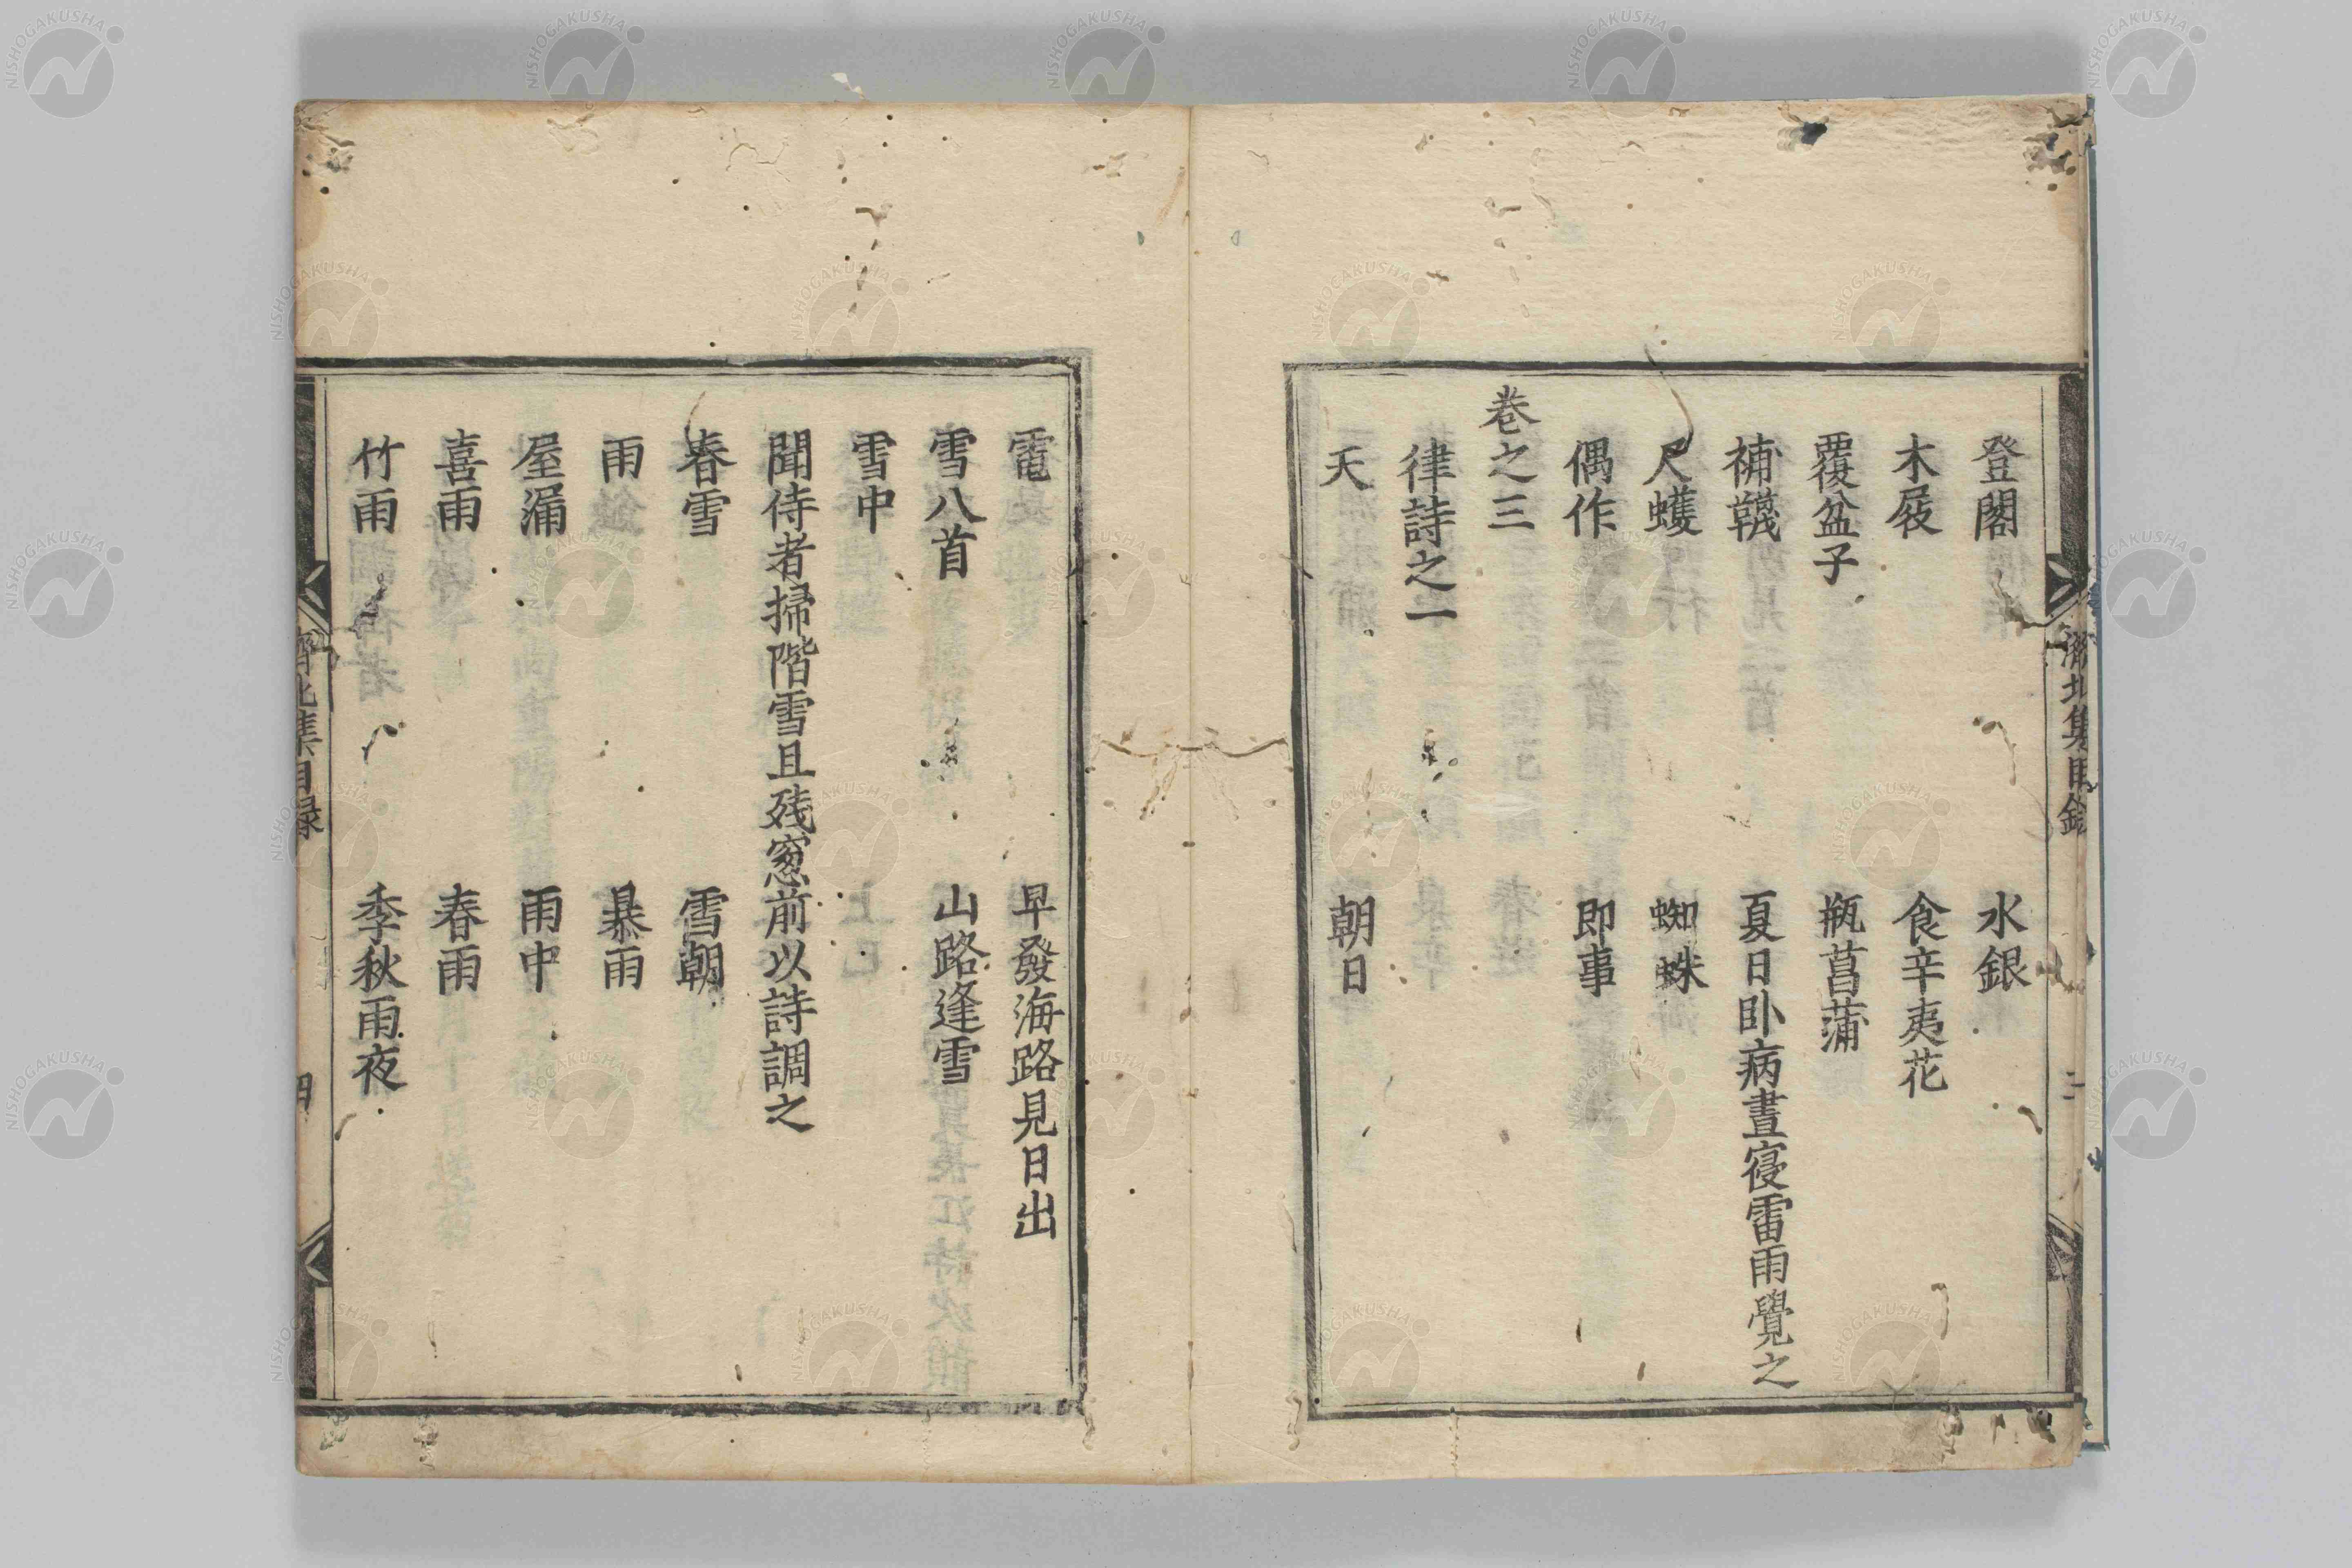 登閣　水銀
木屐　食辛夷花
覆盆子　瓶菖蒲
補韈　夏日卧病晝寢雷雨覺之
尺蠖　蜘蛛
偶作　即事
卷之三
律詩之一
天　朝日
濟北集目錄
電　早發海路見日出
雪八首　山路逢雪
雪中
聞侍者掃階雪且残窓前以詩調之
春雪　雪朝
雨　暴雨
屋漏　雨中
喜雨　春雨
竹雨　季秋雨夜
濟北集目録
NISHOGAKUSHA